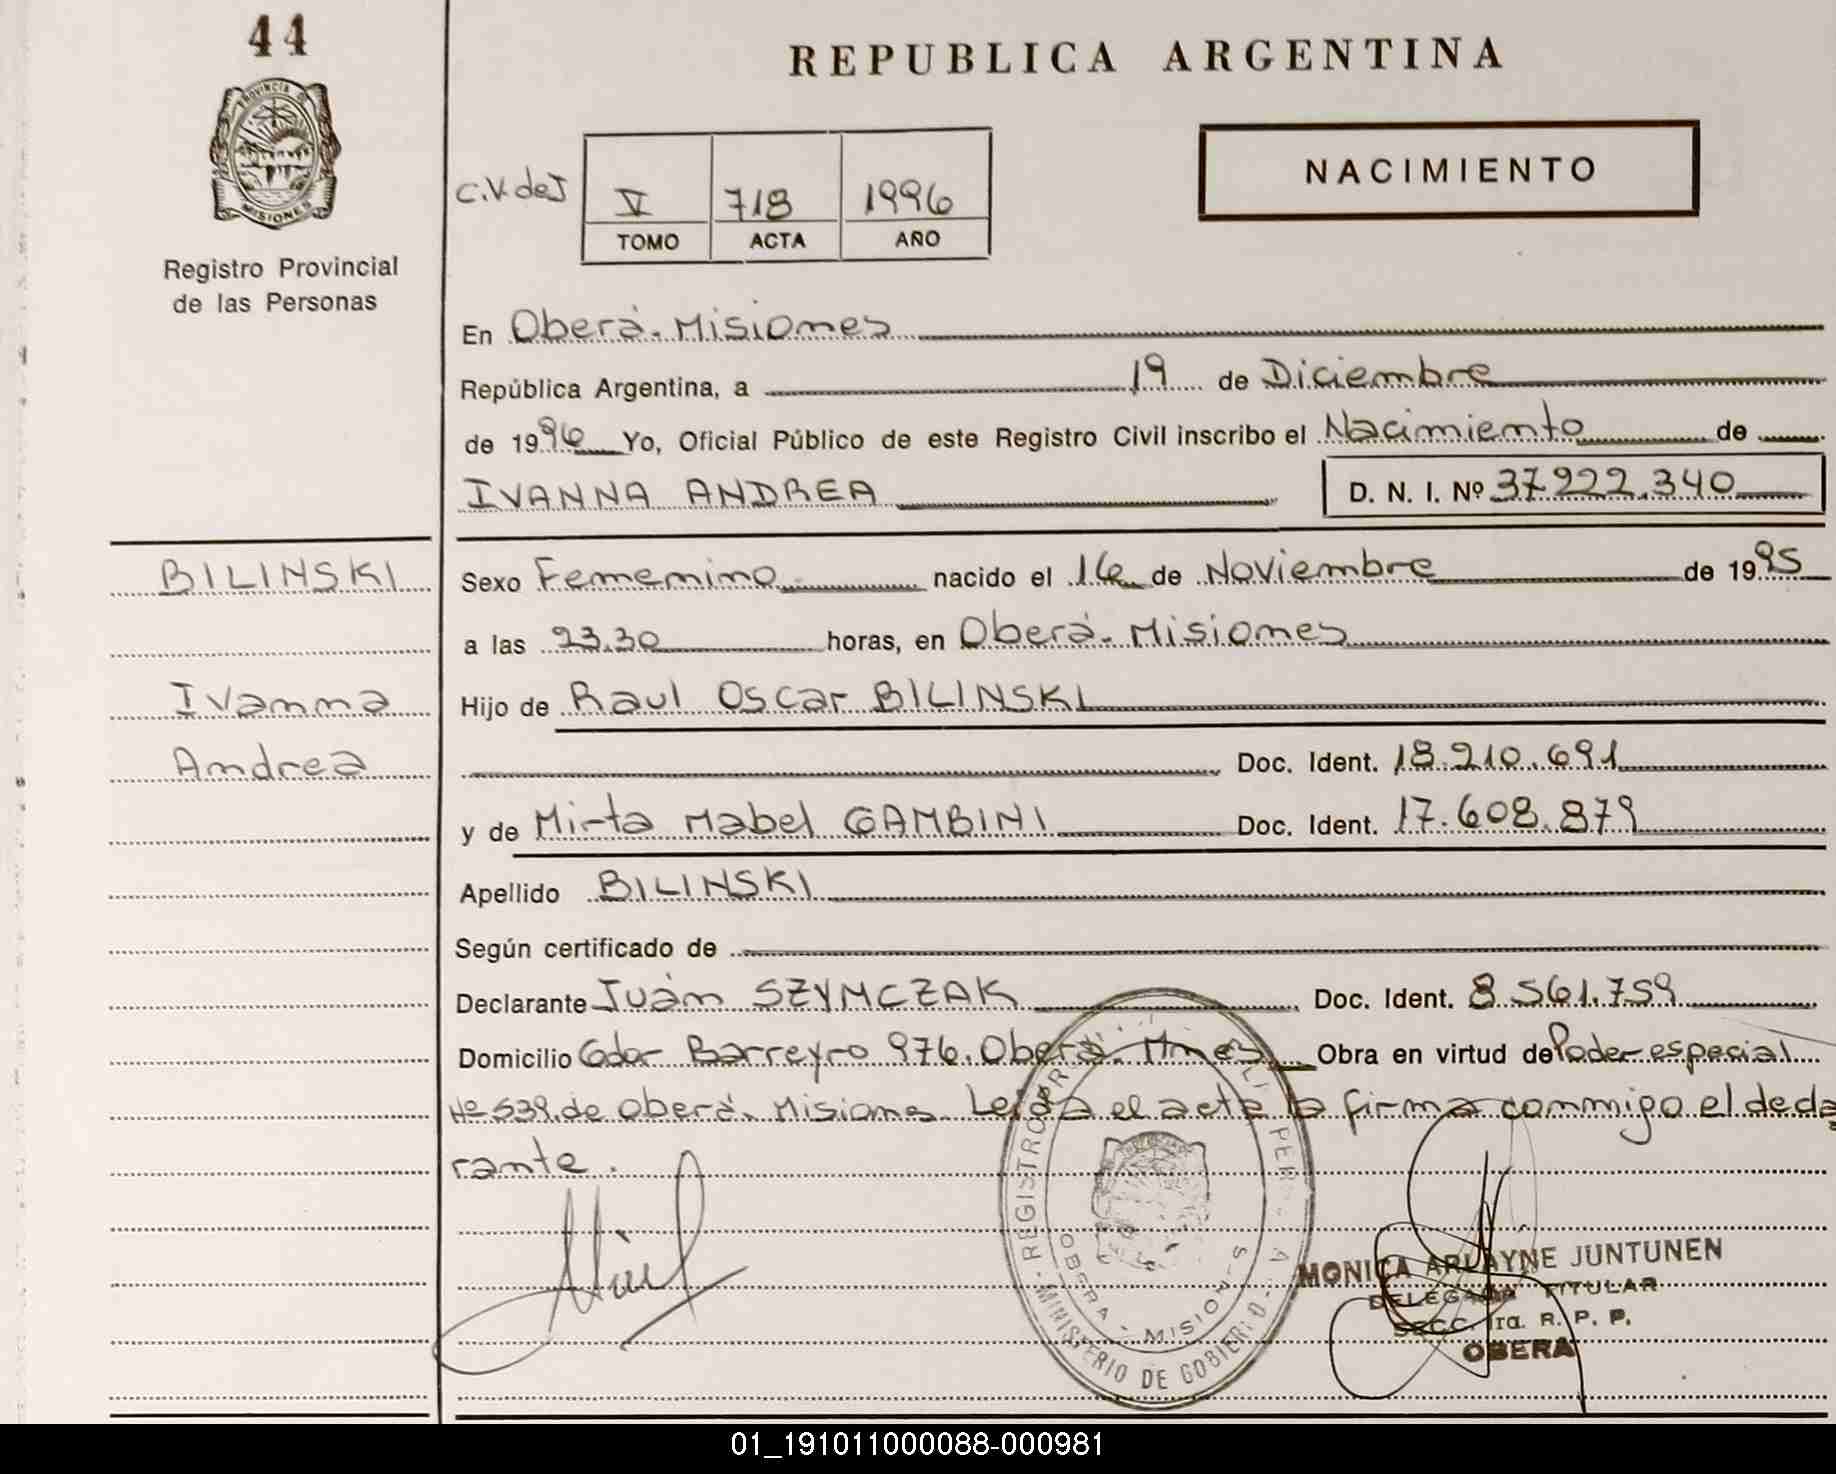 44
PROVINCIA D
MISIONES
Registro Provincial
de las Personas
REPUBLICA ARGENTINA
NACIMIENTO
C.V. de J
V 718 1996
TOMO ACTA AÑO
En Oberá. Misiones
República Argentina, a 19 de Diciembre
de 1996 Yo, Oficial Público de este Registro Civil inscribo el Nacimiento de
IVANNA ANDREA D. N. I. Nº 37.922.340
BILINSKI
Ivanna
Andrea
Sexo Femenino nacido el 16 de Noviembre de 1995
a las 23.30 horas, en Oberá. Misiones
Hijo de Raul Oscar BILINSKI
Doc. Ident. 18.210.691
y de Mirta Mabel GAMBINI Doc. Ident. 17.608.879
Apellido BILINSKI
Según certificado de
Declarante Juán SZYMCZAK Doc. Ident. 8.561.759
Domicilio Gdor Barreyro 976. Oberá. Mnes Obra en virtud de Poder especial
Nº 539. de Oberá. Misiones. Leída el acta la firma conmigo el decla
rante.
REGISTRO
OBERA - MISIONES
MINISTERIO DE GOBIERNO
MONICA ARLAYNE JUNTUNEN
DELEGADA TITULAR
SECC. 1ra. R. P. P.
OBERA
01_191011000088-000981